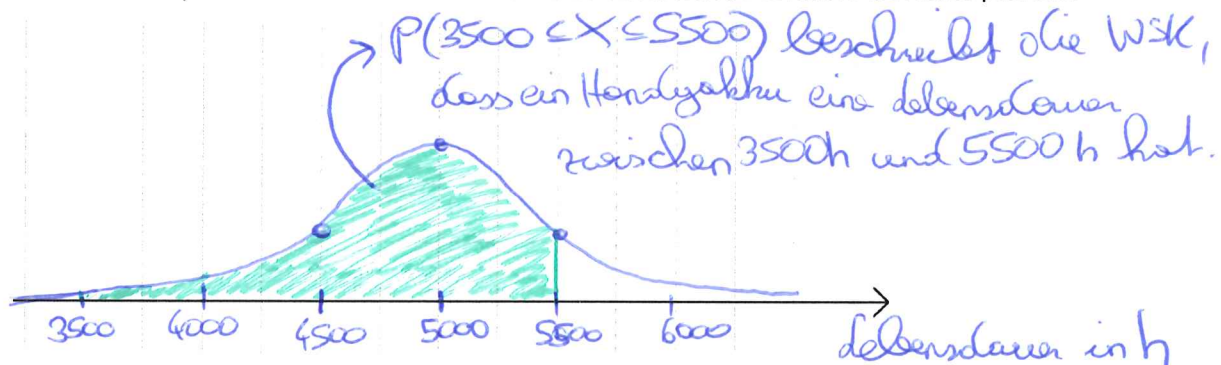 P(3500 ≤ X ≤ 5500) beschreibt die WSK,
dass ein Handyakku eine Lebensdauer
zwischen 3500h und 5500 h hat.
3500 4000 4500 5000 5500 6000
Lebensdauer in h